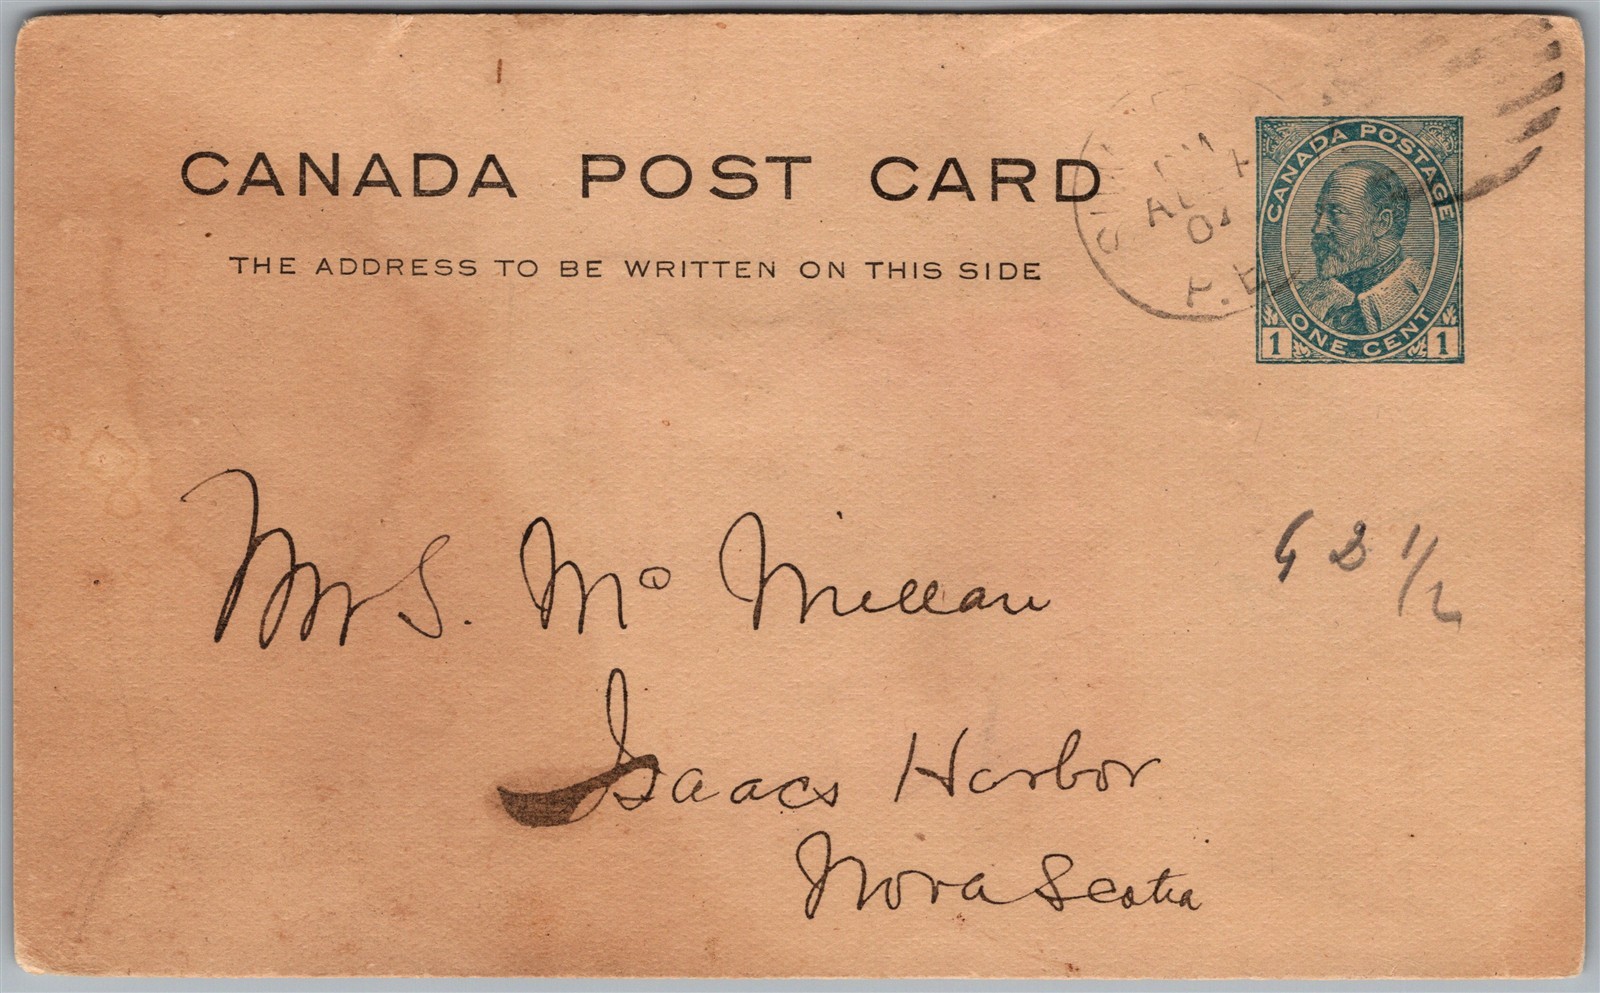 CANADA POST CARD
THE ADDRESS TO BE WRITTEN ON THIS SIDE
CANADA POSTAGE
ONE CENT
1 1
P.E.
Mr S. Mc Millan
Isaacs Harbor
Nova Scotia
1/2